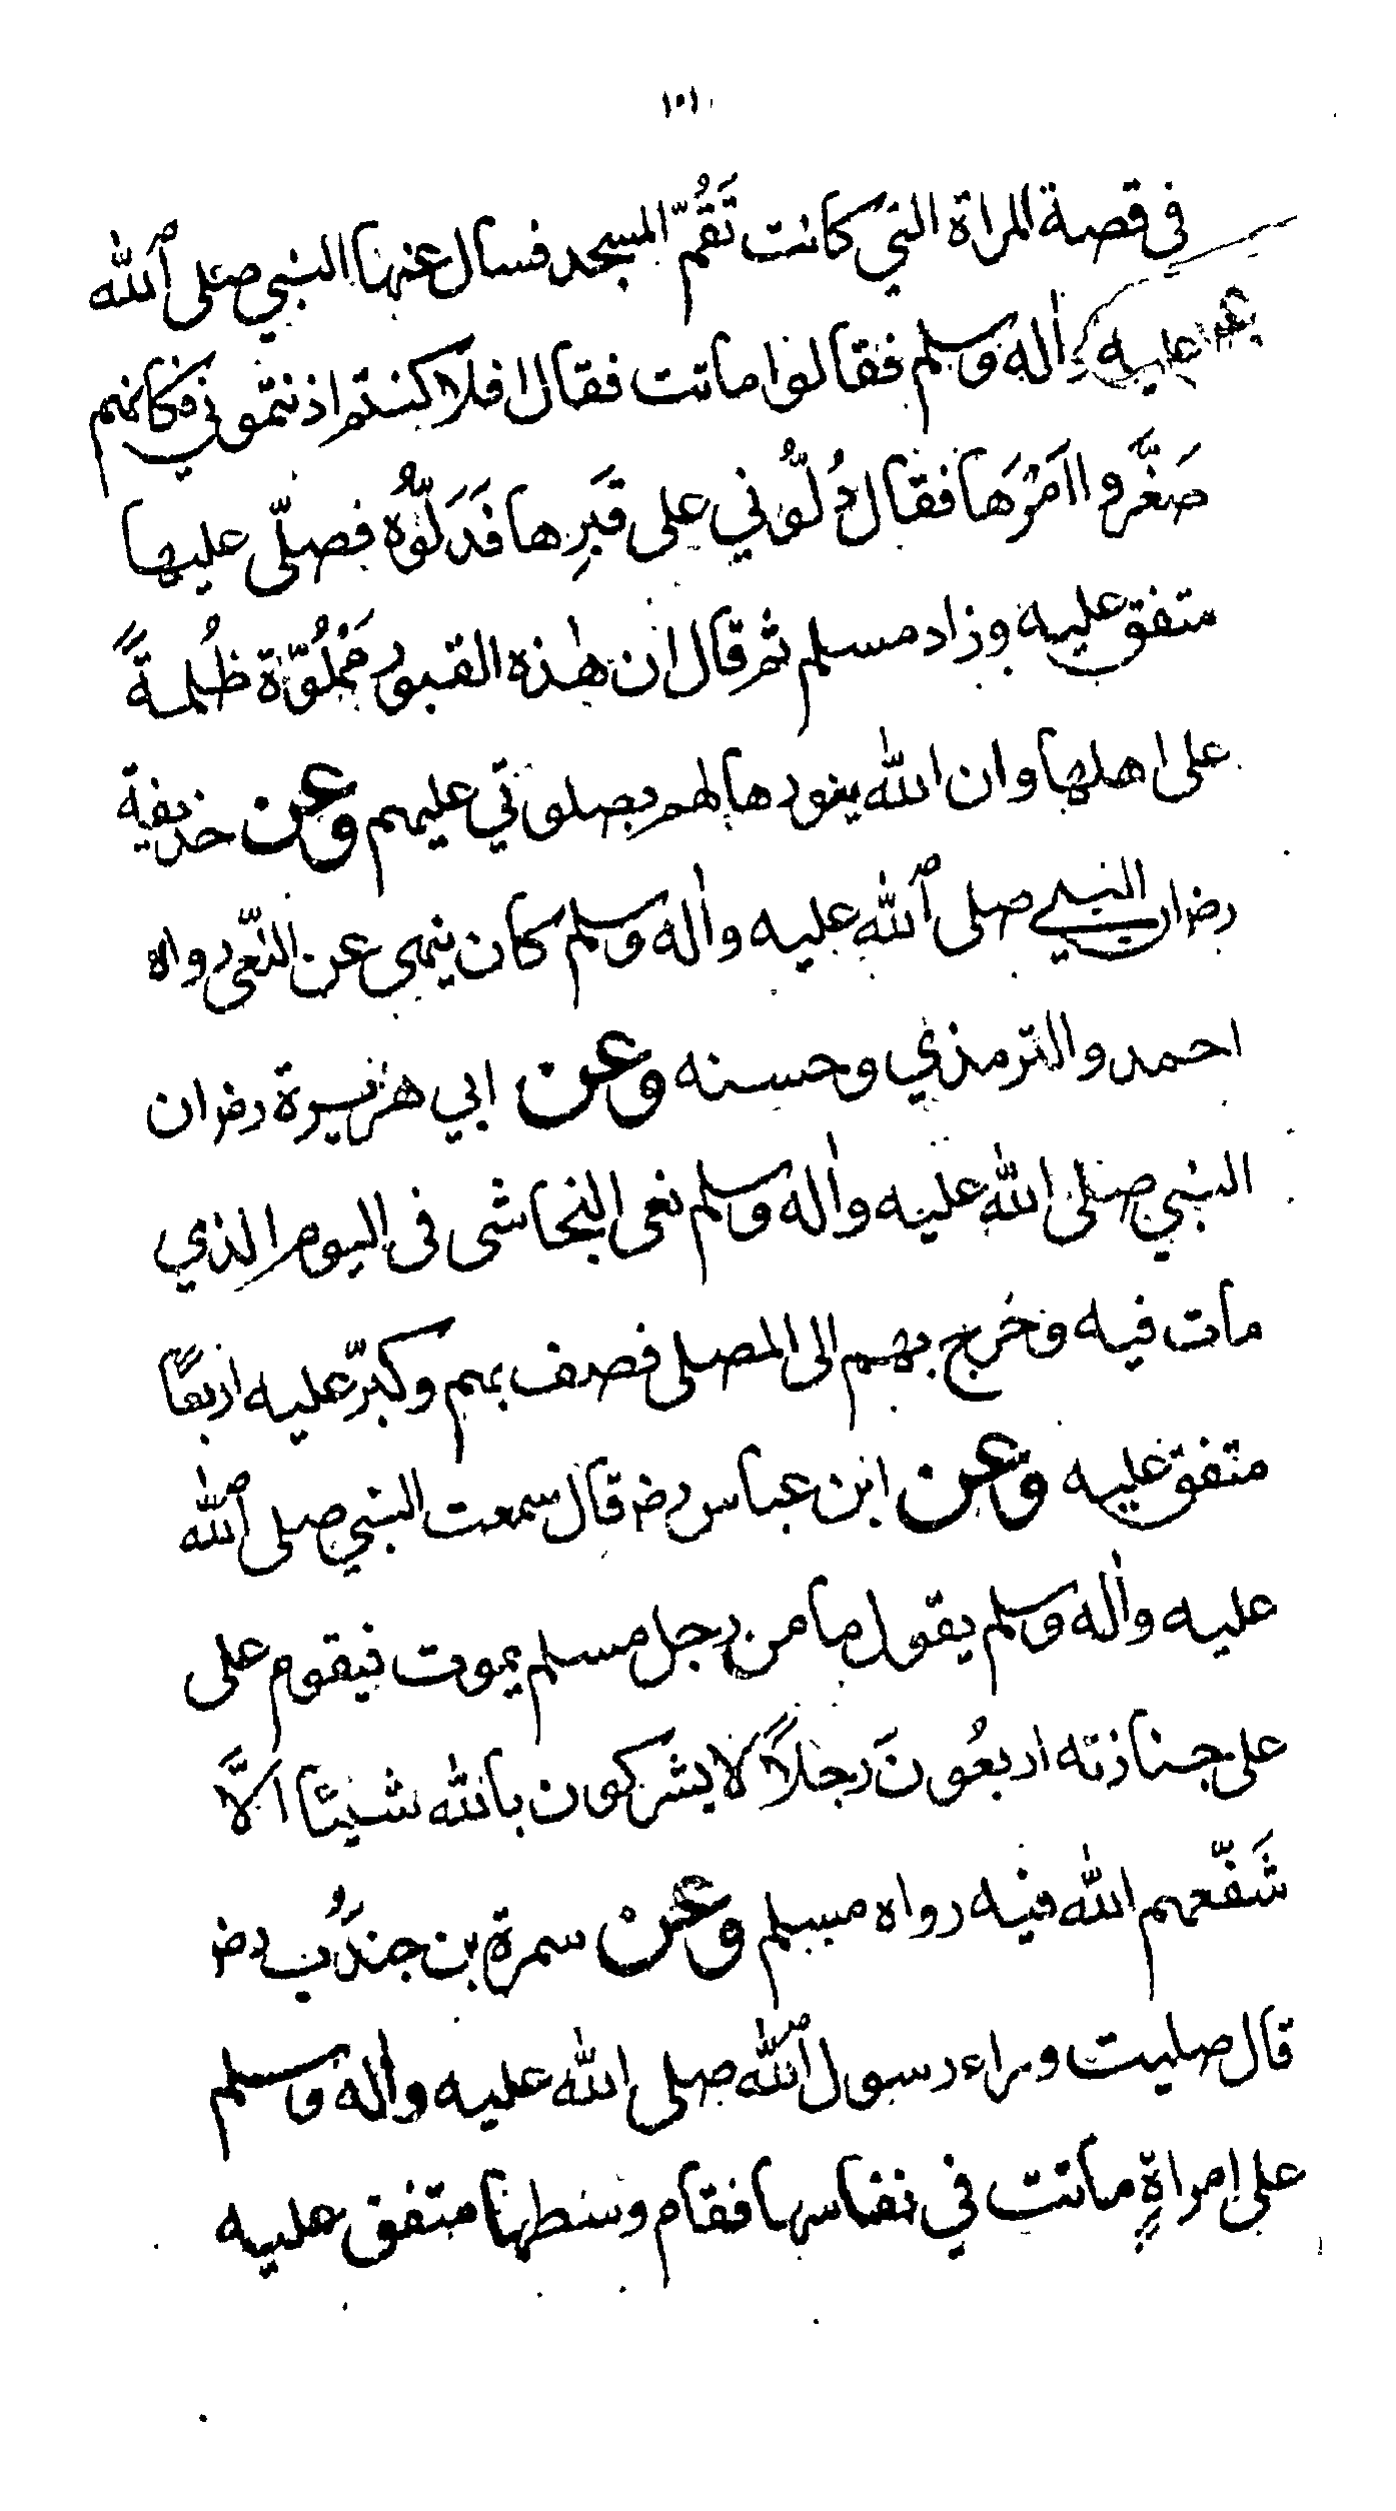 ١٠١
في قصة المراة التي كانت تَقُمّ المسجد فسال عنها النبي صلى الله
عليه واٰله وسلم فقالوا ماتت فقال افلا كنتم اذنتموني فكانهم
صَغَّروا امَرَها فقال دُلّوُني على قَبرِها فَدَلّوُه فصلّى عليها
متفق عليه وزاد مسلم ثم قال ان هٰذه القبور مَمْلُوّة ظُلمةً
على اهلها وان الله ينورها لهم بصلوتي عليهم وعن حذيفة
رضـ ان النبي صلى الله عليه واٰله وسلم كان ينهى عن النّعى رواه
احمد والترمذي وحسنه وعن ابي هريرة رضـ ان
النبي صلى الله عليه واٰله وسلم نعى النجاشى فى اليوم الذي
مات فيه وخرج بهم الى المصلى فصف بهم وكبّر عليه اربعًا
متفق عليه وعن ابن عباس رضـ قال سمعت النبي صلى الله
عليه واٰله وسلم يقول ما من رجل مسلم يموت فيقوم على
على جنازته اربعُونَ رجلاً لا يشركون بالله شيئا الاَّ
شَفّعهم الله فيه رواه مسلم وعن سمرة بن جندُب رضـ
قال صليت وراء رسول الله صلى الله عليه واٰله وسلم
على امراةٍ ماتت في نفاسها فقام وسطها متفق عليه